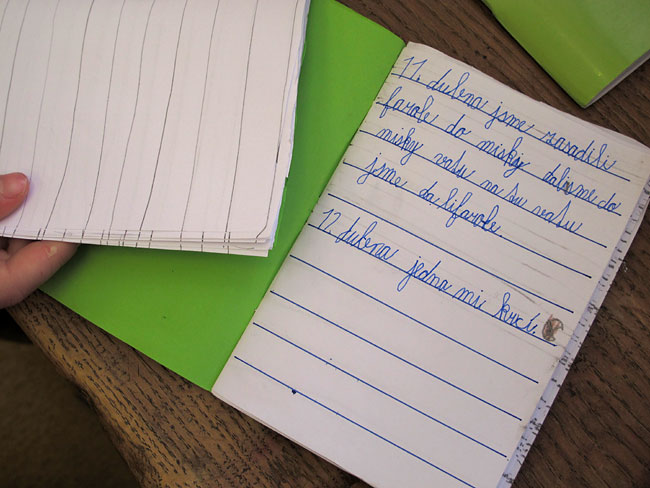 11. dubna jsme rasadili
farole do misky dali sme do
misky vatu na tu vatu
jsme da lifarole.
12. dubna jedna mi krčí.